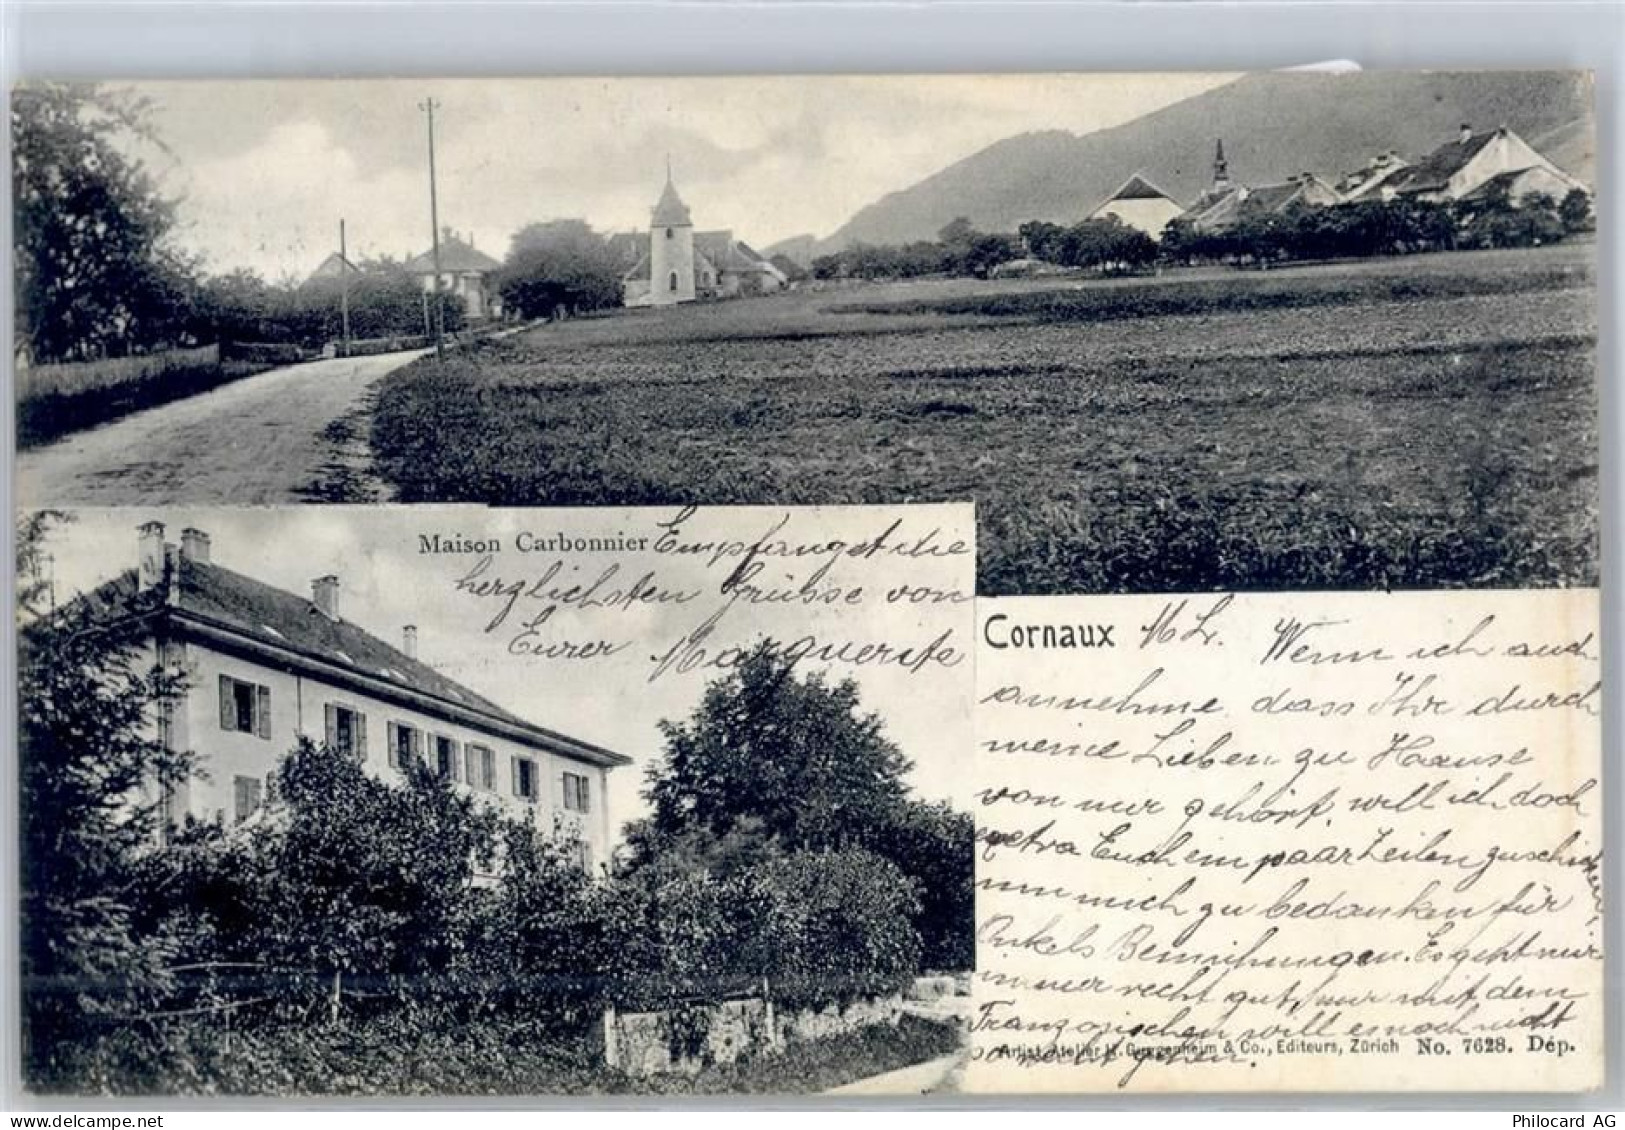 Maison Carbonnier Empfanget die
herzlichsten Grüsse von
Eurer Marguerite
Cornaux M. L. Wenn ich auch
annehme, dass Ihr durch
meine Lieben zu Hause
von mir gehört, will ich doch
extra Euch ein paar Zeilen zuschicken,
um mich zu bedanken für
Onkels Bemühungen. Es geht mir
immer recht gut, nur mit dem
Französischen will es noch nicht
so recht gehen.
Artist. Atelier H. Guggenheim & Co., Editeurs, Zürich No. 7628. Dép.
Philocard AG